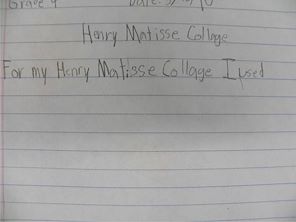 Grade 9 Date:
Henry Matisse Collage
For my Henry Matisse Collage I used